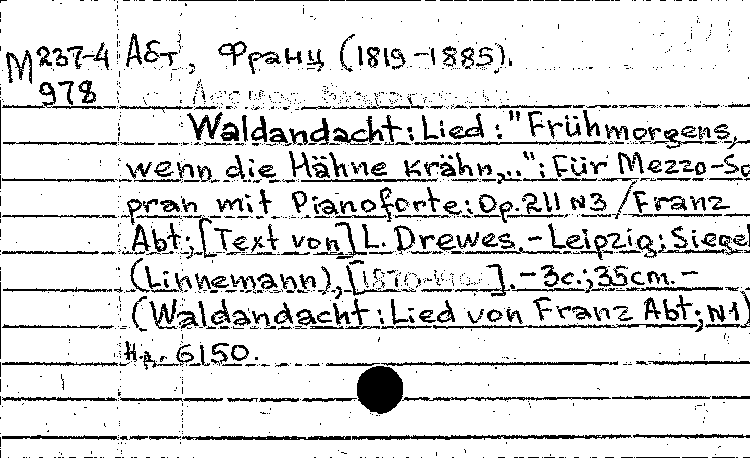 М 237-4 Абт, Франц (1819-1885).
978
Waldandacht: Lied: "Frühmorgens,
wenn die Hähne krähn,..": Für Mezzo-So
pran mit Pianoforte: Op. 211 N3 / Franz
Abt; [Text von] L. Drewes. - Leipzig: Siegel
(Linnemann), [1870- ]. - 3с.; 35cm. -
(Waldandacht: Lied von Franz Abt; N1)
Н.д. 6150.